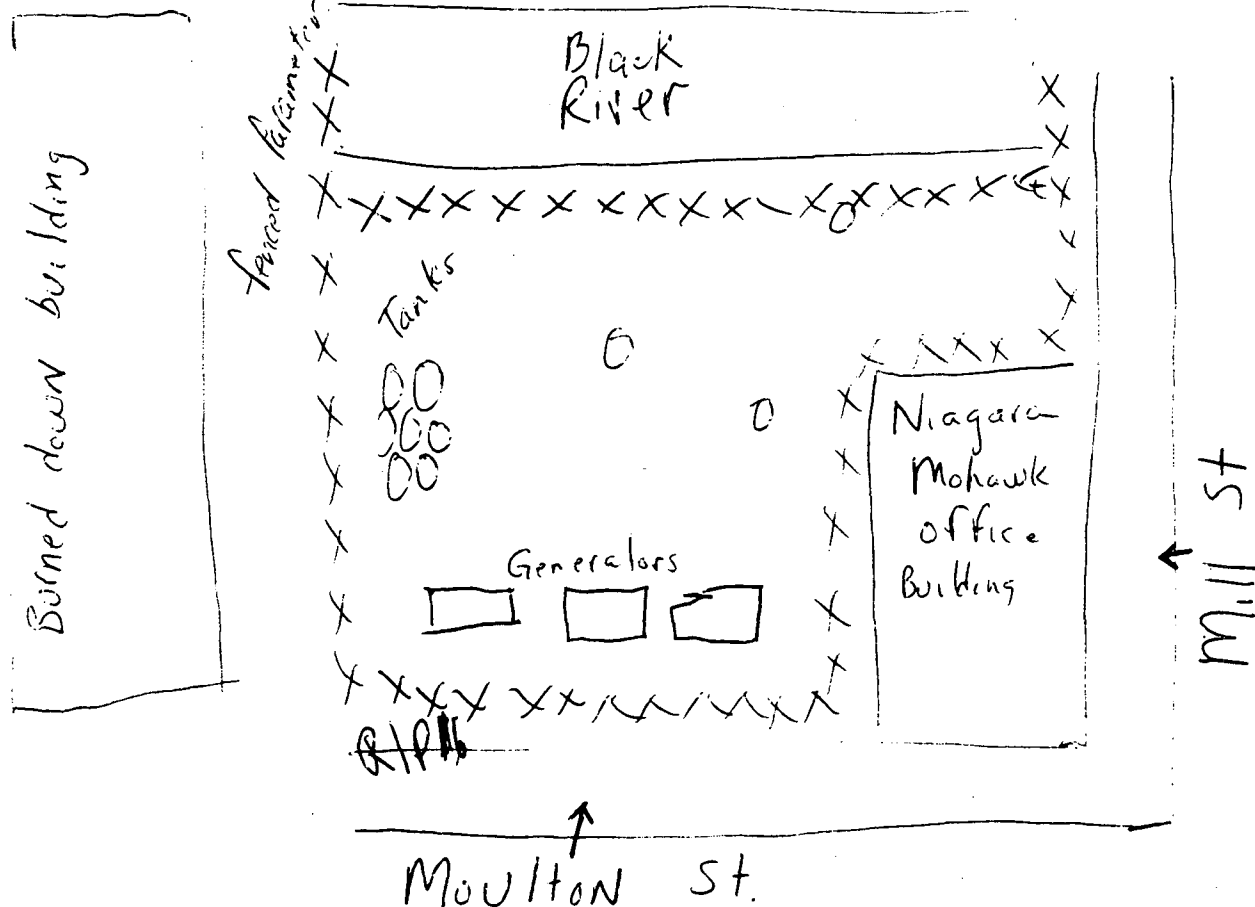 Black
River
Burned down building
fenced Parameter
Tanks
Generators
Niagara
Mohawk
office
Building
Mill St
Moulton St.